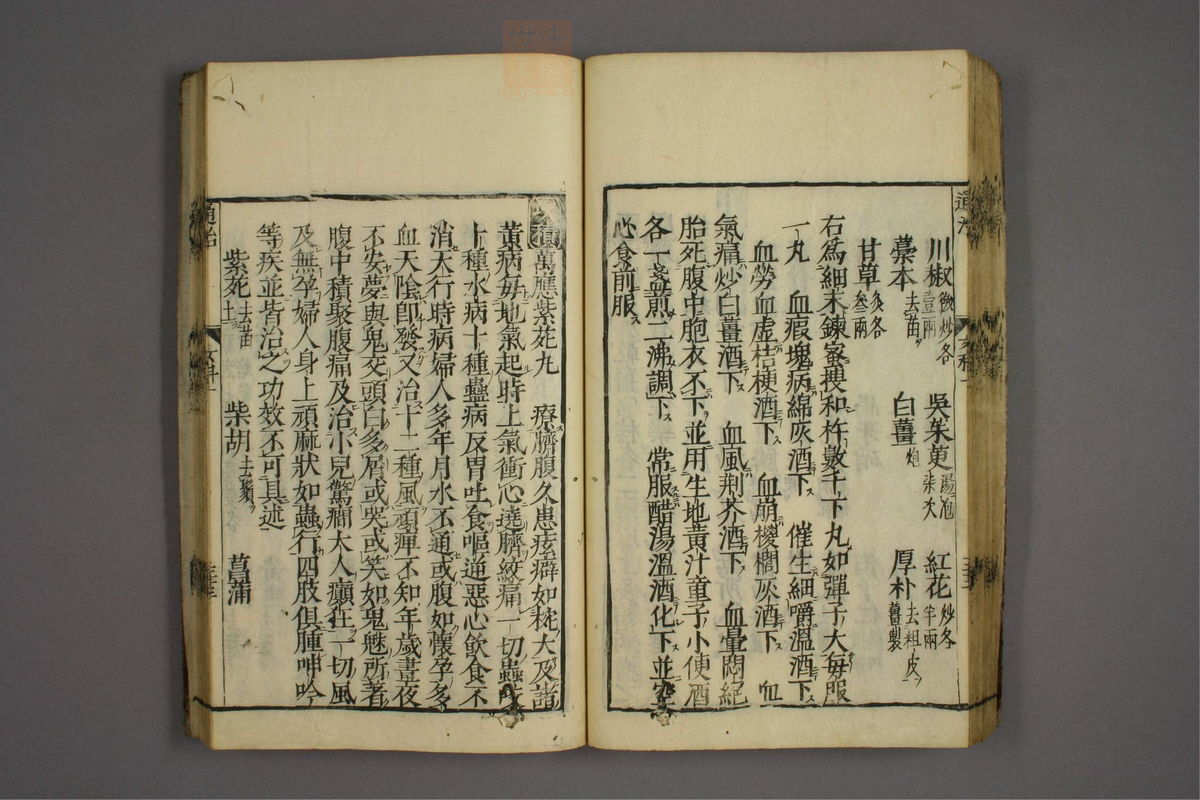 通治
川椒微炒各壹兩 吳茱萸湯泡柒次 紅花炒各半兩
藁本去苗 白薑炮 厚朴去粗皮薑製
甘草炙各叄兩
右爲細末鍊蜜搜和杵數千下丸如彈子大每服
一丸 血瘕塊病綿灰酒下 催生細嚼溫酒下
血勞血虛桔梗酒下 血崩椶櫚灰酒下 血
氣痛炒白薑酒下 血風荆芥酒下 血暈悶絕
胎死腹中胞衣不下並用生地黃汁童子小便酒
各一盞煎二沸調下 常服醋湯溫酒化下並空
心食前服
萬應紫菀丸 療臍腹久患痃癖如椀大及諸
黃病每地氣起時上氣衝心遶臍絞痛一切蟲咬
十種水病十種蠱病反胃吐食嘔逆惡心飲食不
消天行時病婦人多年月水不通或腹如懷孕多
血天陰卽發又治十二種風頑痺不知年歲晝夜
不安夢與鬼交頭白多屑或哭或笑如鬼魅所著
腹中積聚腹痛及治小兒驚癎大人癲狂一切風
及無孕婦人身上頑麻狀如蟲行四肢俱腫呻吟
等疾並皆治之功效不可具述
紫菀去苗土 柴胡去鬚 菖蒲
通治